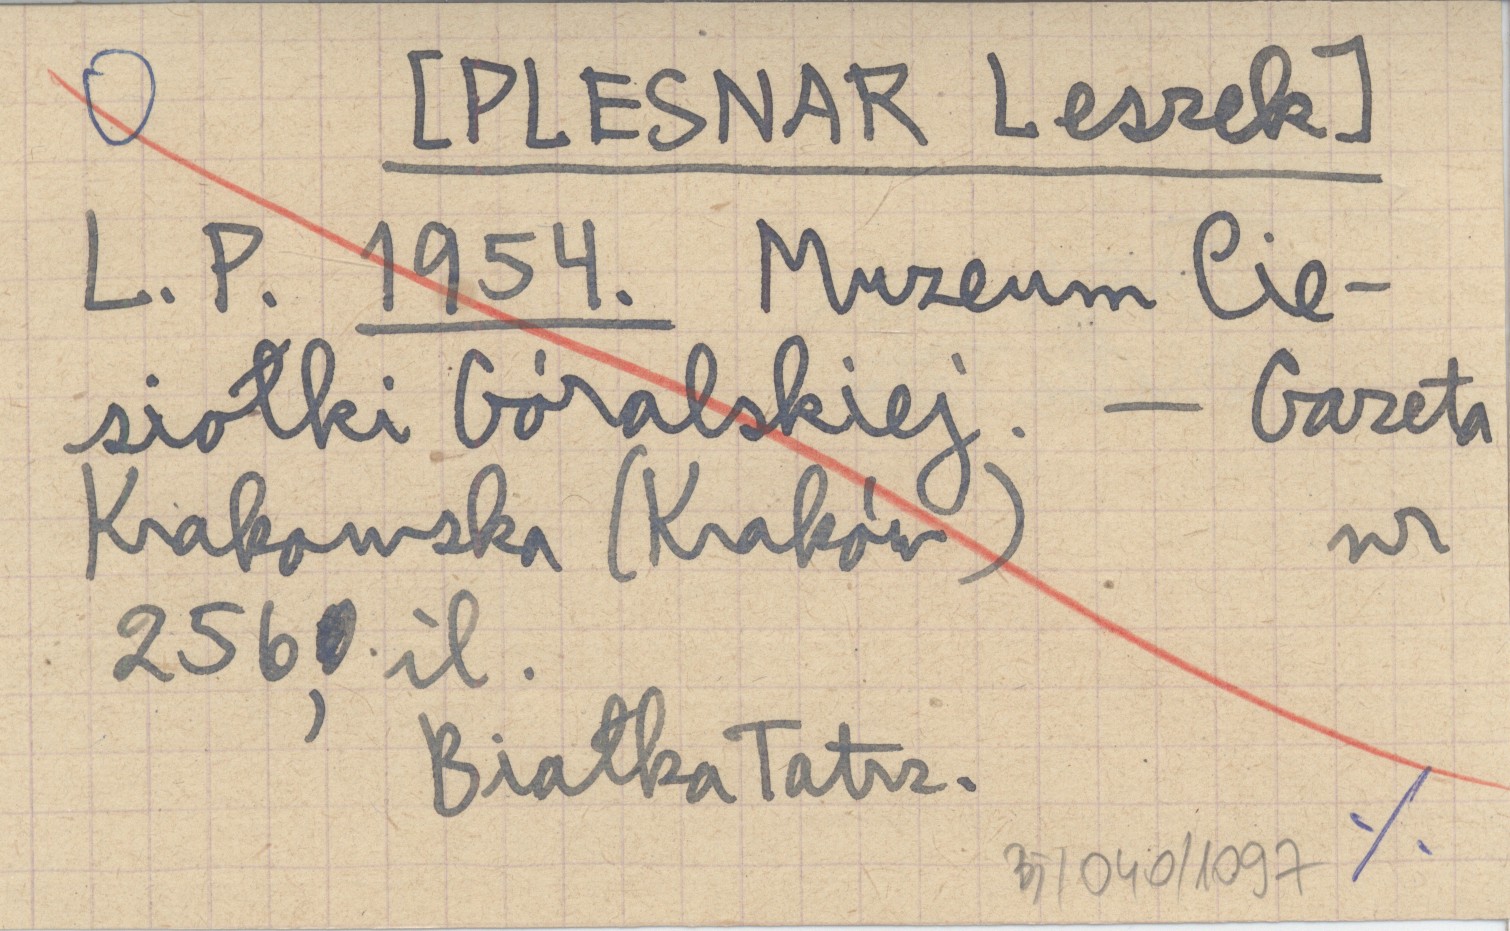 O [PLESNAR Leszek]
L. P. 1954. Muzeum Cie-
siołki Góralskiej. — Gazeta
Krakowska (Kraków) nr
256, il.
Białka Tatrz.
040/1097 ./.